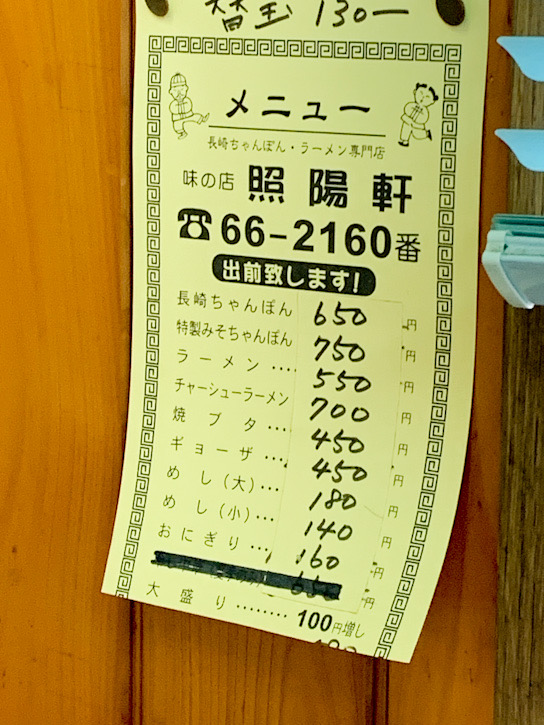 替玉 130ー
メニュー
長崎ちゃんぽん・ラーメン専門店
味の店 照陽軒
☎66-2160番
出前致します!
長崎ちゃんぽん 650円
特製みそちゃんぽん 750円
ラーメン‥‥ 550円
チャーシューラーメン 700円
焼ブタ‥‥ 450円
ギョーザ‥‥ 450円
めし(大)‥‥ 180円
めし(小)‥‥ 140円
おにぎり‥‥ 160円
円
大盛り‥‥‥‥ 100円増し